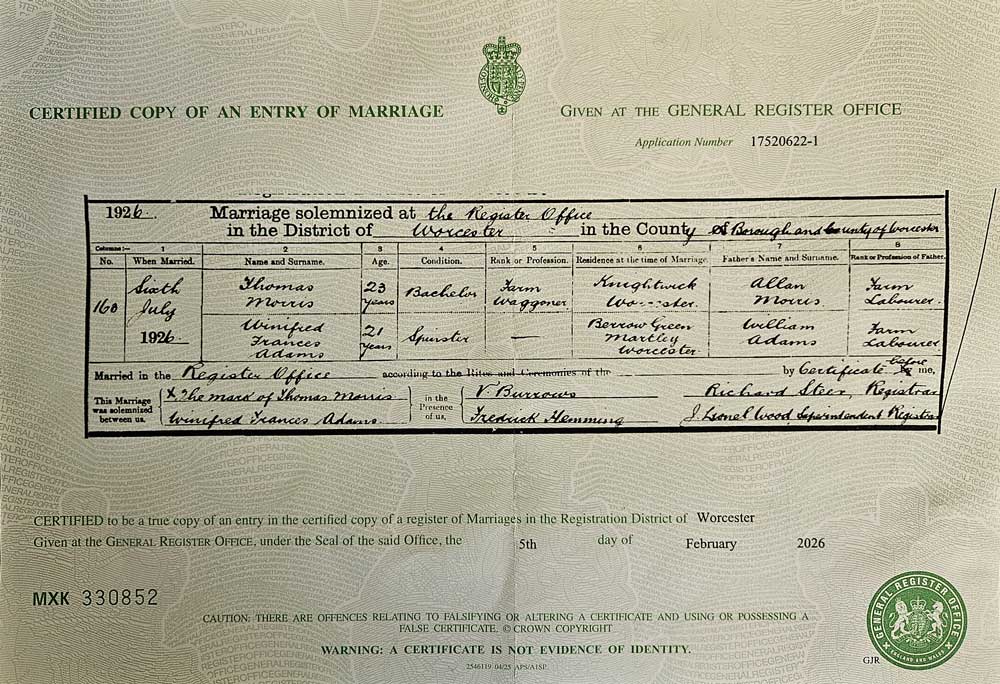 CERTIFIED COPY OF AN ENTRY OF MARRIAGE
GIVEN AT THE GENERAL REGISTER OFFICE
Application Number 17520622-1
1926. Marriage solemnized at the Register Office
in the District of Worcester in the County of Borough and County of Worcester
Columns:— 1 2 3 4 5 6 7 8
No. When Married. Name and Surname. Age. Condition. Rank or Profession. Residence at the time of Marriage. Father's Name and Surname. Rank or Profession of Father.
160 Sixth July 1926 Thomas Morris 23 years Bachelor Farm Waggoner Knightwick Allan Morris. Farm Labourer.
Winifred Frances Adams 21 years Spinster — Berrow Green Martley Worcester William Adams Farm Labourer
Married in the Register Office according to the Rites and Ceremonies of the by Certificate before me,
This Marriage was solemnized between us, X The mark of Thomas Morris in the Presence of us, V. Burrows Richard Steer, Registrar
Winifred Frances Adams Fredrick Hemming J. Lionel Wood Superintendent Registrar
CERTIFIED to be a true copy of an entry in the certified copy of a register of Marriages in the Registration District of Worcester
Given at the GENERAL REGISTER OFFICE, under the Seal of the said Office, the 5th day of February 2026
MXK 330852
CAUTION: THERE ARE OFFENCES RELATING TO FALSIFYING OR ALTERING A CERTIFICATE AND USING OR POSSESSING A
FALSE CERTIFICATE. © CROWN COPYRIGHT
WARNING: A CERTIFICATE IS NOT EVIDENCE OF IDENTITY.
2546119 04/25 APS/A1SP
GENERAL REGISTER OFFICE
ENGLAND AND WALES
GJR